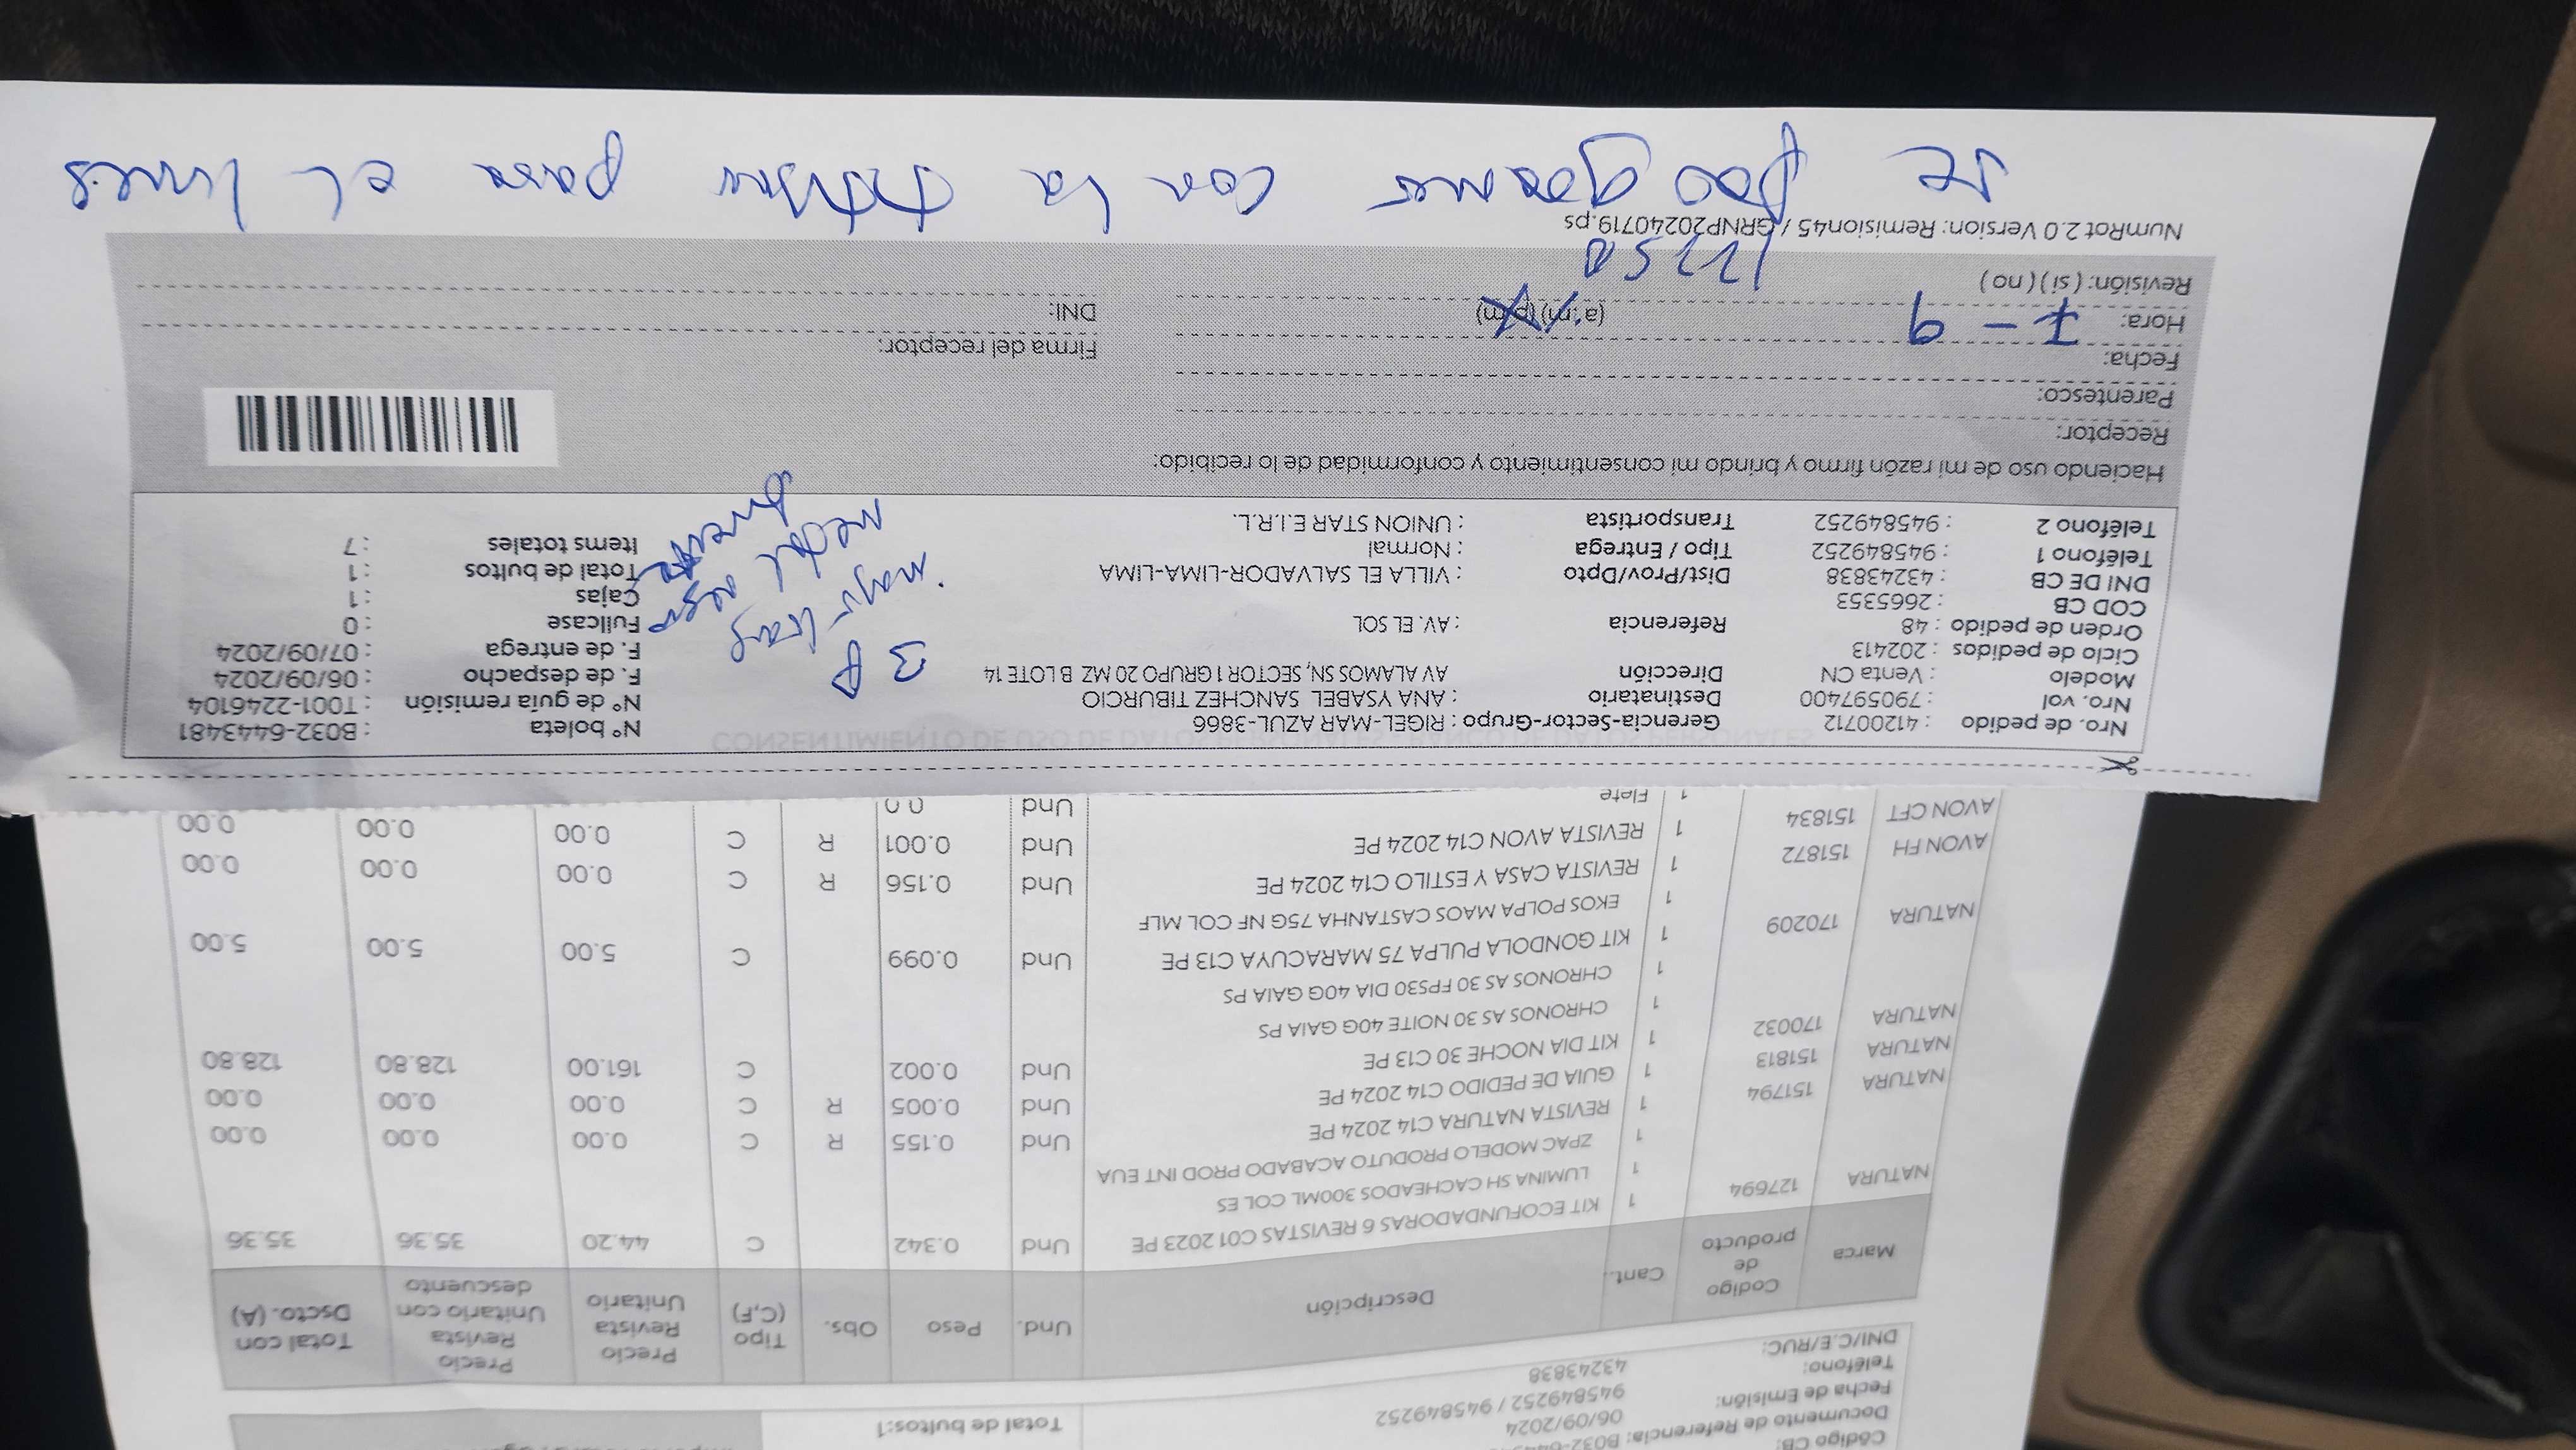 Código CB:
Documento de Referencia: B032-644
Fecha de Emisión: 06/09/2024
Teléfono: 945849252 / 945849252
DNI/C.E/RUC: 43243838
Total de bultos:1
Marca Codigo de producto Cant. Descripción Und. Peso Obs. Tipo (C,F) Precio Revista Unitario Precio Revista Unitario con descuento Total con Dscto. (A)
NATURA 127694 1 KIT ECOFUNDADORAS 6 REVISTAS C01 2023 PE Und 0.342 C 44.20 35.36 35.36
1 LUMINA SH CACHEADOS 300ML COL ES
1 ZPAC MODELO PRODUTO ACABADO PROD INT EUA
NATURA 151794 1 REVISTA NATURA C14 2024 PE Und 0.155 R C 0.00 0.00 0.00
NATURA 151813 1 GUIA DE PEDIDO C14 2024 PE Und 0.005 R C 0.00 0.00 0.00
NATURA 170032 1 KIT DIA NOCHE 30 C13 PE Und 0.002 C 161.00 128.80 128.80
1 CHRONOS AS 30 NOITE 40G GAIA PS
1 CHRONOS AS 30 FPS30 DIA 40G GAIA PS
NATURA 170209 1 KIT GONDOLA PULPA 75 MARACUYA C13 PE Und 0.099 C 5.00 5.00 5.00
1 EKOS POLPA MAOS CASTANHA 75G NF COL MLF
AVON FH 151872 1 REVISTA CASA Y ESTILO C14 2024 PE Und 0.156 R C 0.00 0.00 0.00
AVON CFT 151834 1 REVISTA AVON C14 2024 PE Und 0.001 R C 0.00 0.00 0.00
1 Flete Und 0.0
CONSENTIMIENTO DE USO DE DATOS
Nro. de pedido : 41200712 Gerencia-Sector-Grupo : RIGEL-MAR AZUL-3866 Nº boleta : B032-6443481
Nro. vol : 790597400 Destinatario : ANA YSABEL SANCHEZ TIBURCIO Nº de guía remisión : T001-2246104
Modelo : Venta CN Dirección AV ALAMOS SN, SECTOR 1 GRUPO 20 MZ B LOTE 14 F. de despacho : 06/09/2024
Ciclo de pedidos : 202413 F. de entrega : 07/09/2024
Orden de pedido : 48 Referencia : AV. EL SOL Fullcase : 0
COD CB : 2665353 Cajas : 1
DNI DE CB : 43243838 Dist/Prov/Dpto : VILLA EL SALVADOR-LIMA-LIMA Total de bultos : 1
Teléfono 1 : 945849252 Tipo / Entrega : Normal Items totales : 7
Teléfono 2 : 945849252 Transportista : UNION STAR E.I.R.L.
3 P
Haciendo uso de mi razón firmo y brindo mi consentimiento y conformidad de lo recibido:
Receptor:
Parentesco:
Fecha:
Firma del receptor:
Hora: 7-9 (a.m) (p.m)
DNI:
Revisión: (si) (no)
1225
NumRot 2.0 Version: Remision45 / GRNP20240719.ps
se con la para el lunes